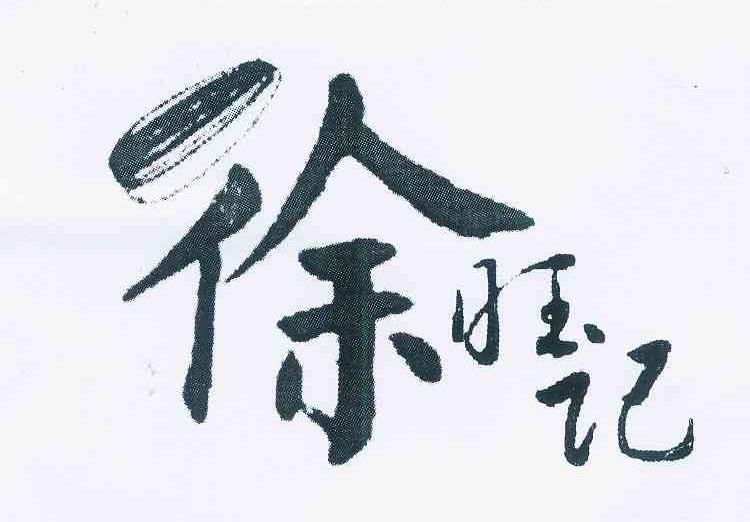 徐旺记